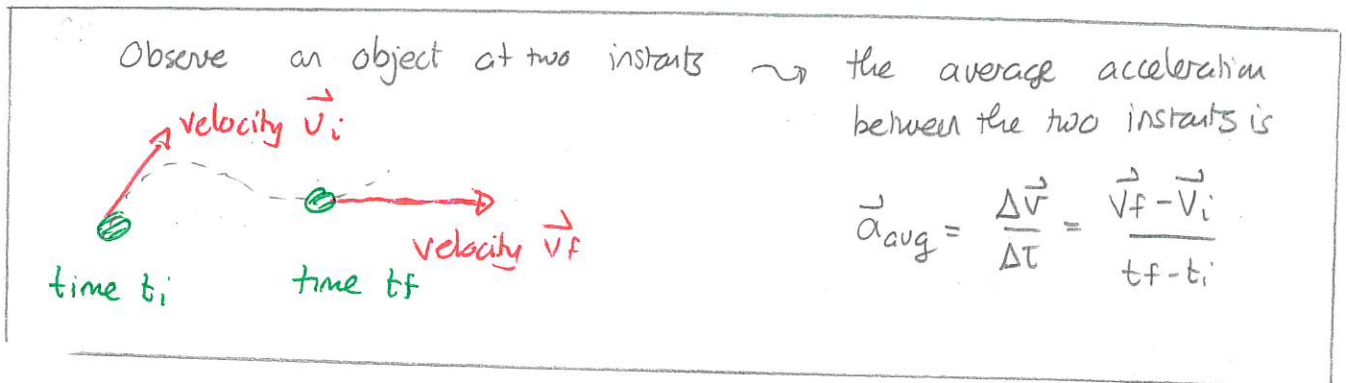 Observe an object at two instants ⇝ the average acceleration
between the two instants is
velocity v⃗ᵢ
velocity v⃗f
time tᵢ
time tf
a⃗avg = Δv⃗/Δt = (v⃗f - v⃗ᵢ)/(tf - tᵢ)